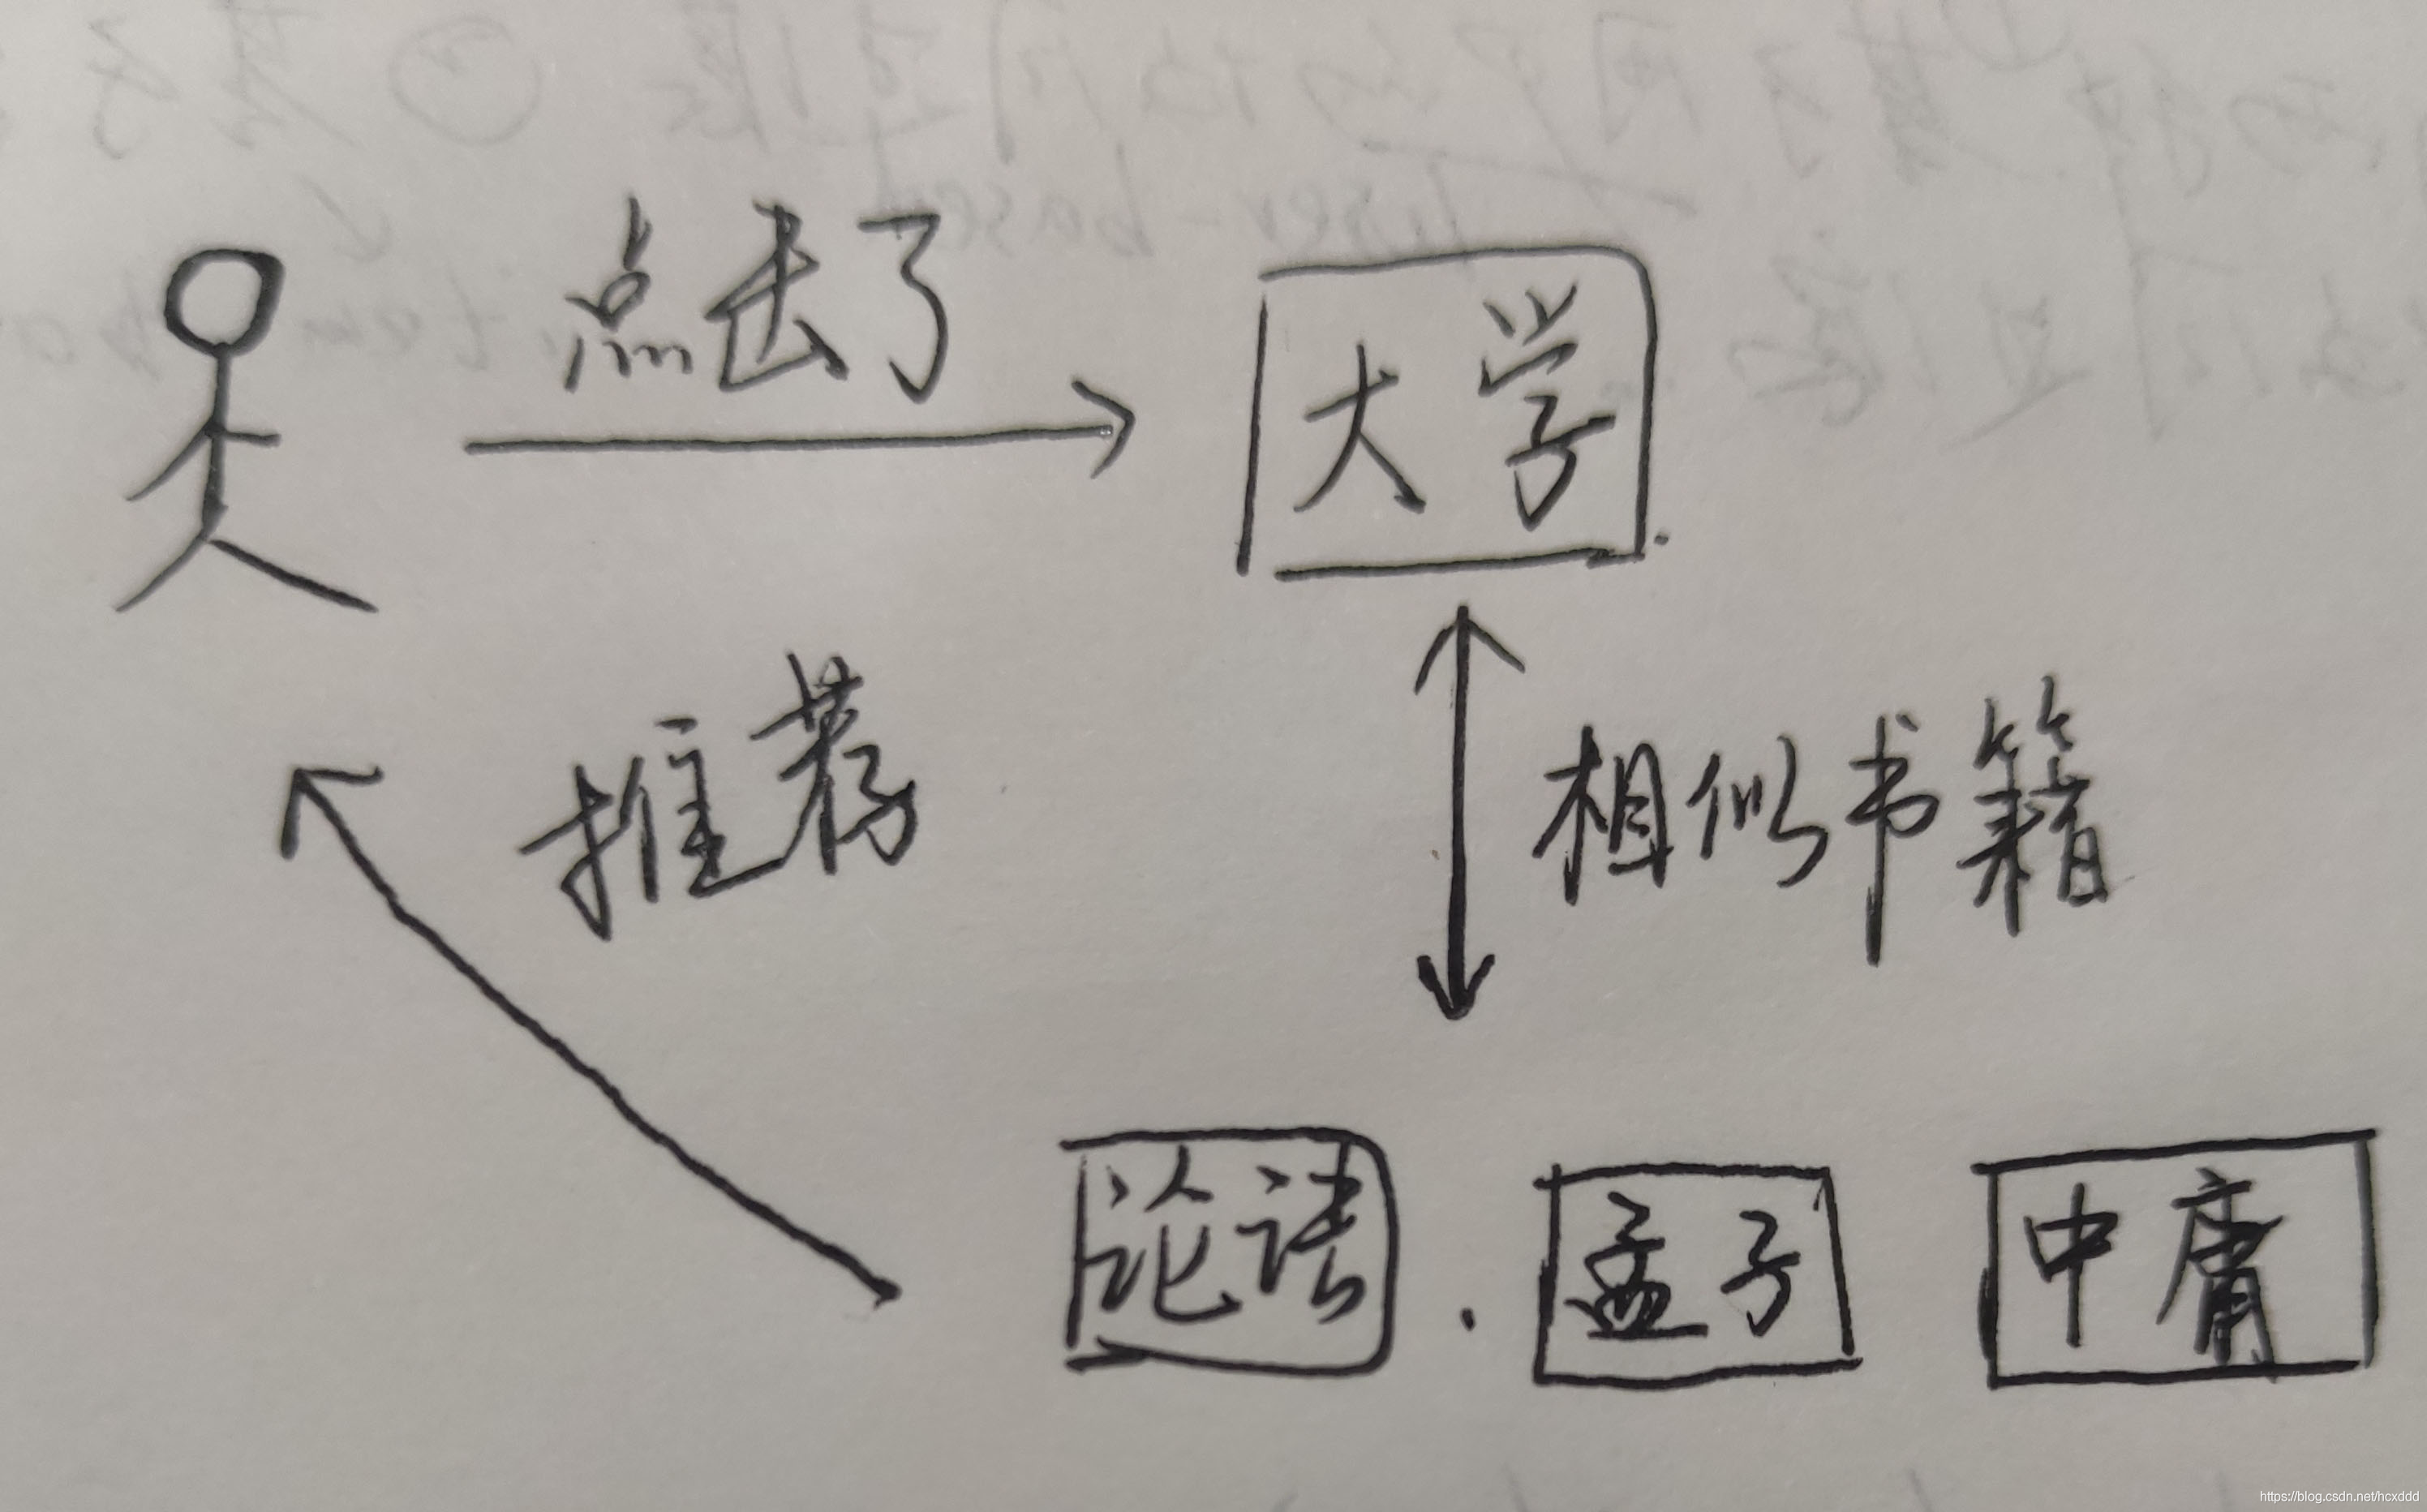 点击了
大学
推荐
相似书籍
论语 . 孟子 中庸
https://blog.csdn.net/hcxddd